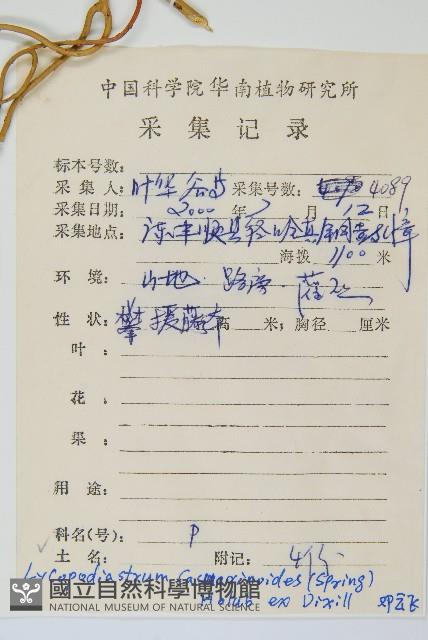 中国科学院华南植物研究所
采集记录
标本号数:
采集人: 叶华谷 采集号数: 4089
采集日期: 2000 年 7 月 12 日
采集地点:
海拨 1100 米
环境: 山地. 路旁.
性状: 攀援藤本 高 米; 胸径 厘米
叶:
花:
果:
用途:
科名(号): P
土名: 附记: 4份
Lycopodiastrum casuarinoides (Spring)
Holub ex Dixill 邓云飞
國立自然科學博物館
NATIONAL MUSEUM OF NATURAL SCIENCE